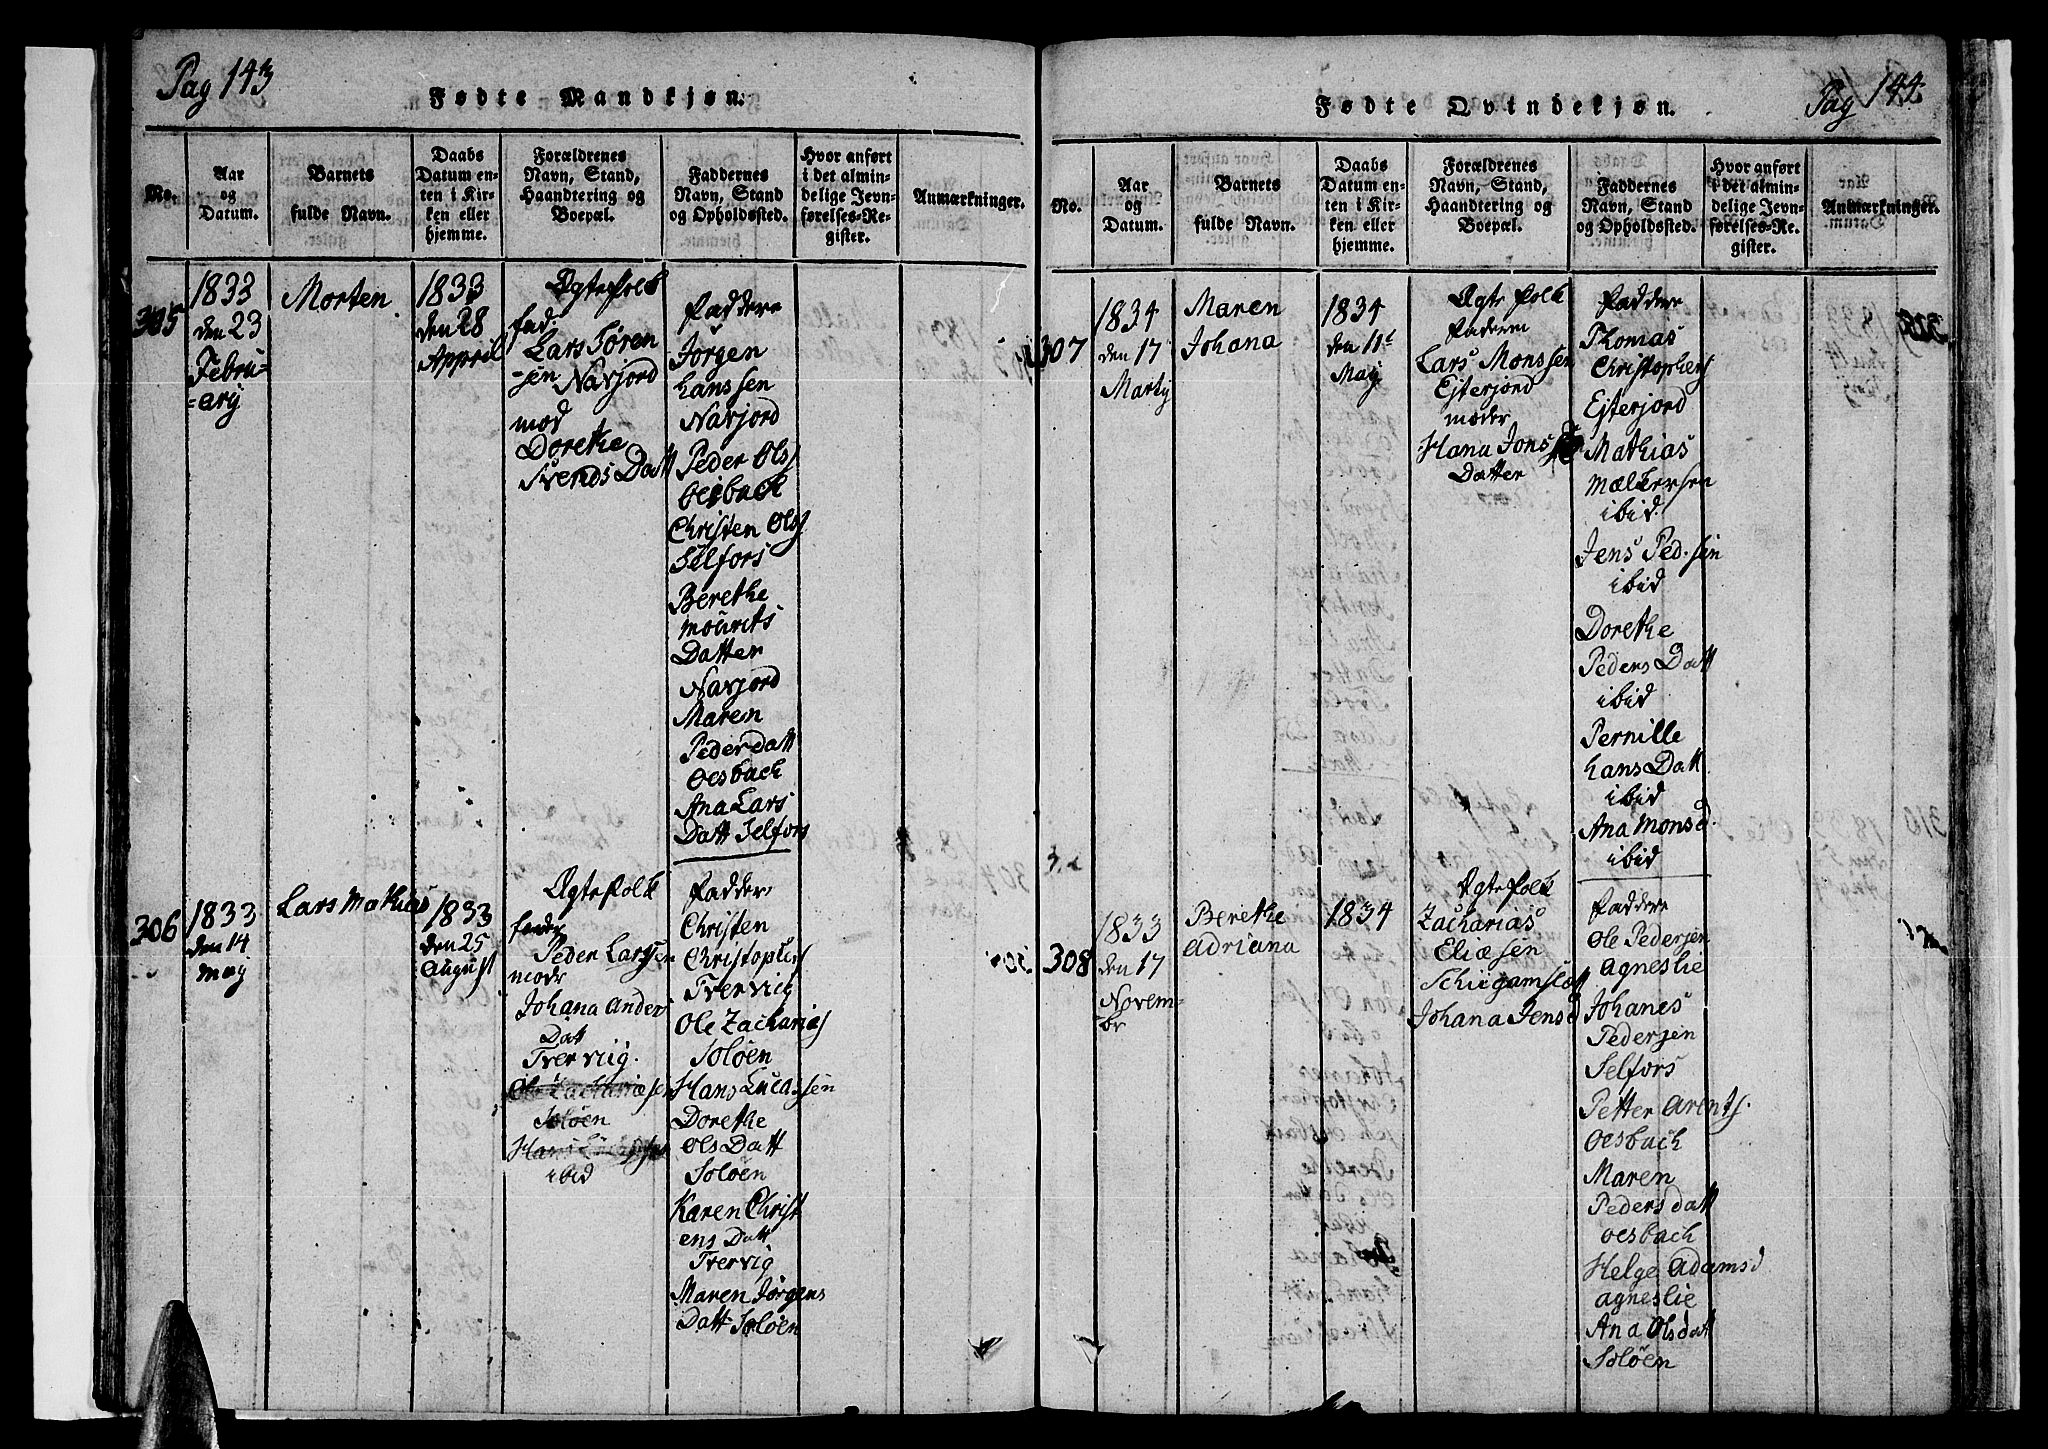 Pag 143
Fødte Mandkjøn.
No.
Aar
og
Datum.
Barnets
fulde Navn.
Daabs
Datum en-
ten i Kir-
ken eller
hjemme.
Forældrenes
Navn, Stand,
Haandtering og
Boepæl.
Faddernes
Navn, Stand
og Opholdssted.
Hvor anført
i det almin-
delige Jevn-
førelses-Re-
gister.
Anmærkninger.
305
1833
den 23
Febru-
=ary
Morten
1833
den 28
Appril
Ægte folk
fad
Lars Søren
-sen Navjord
mod
Dorethe
Svends Datt
Faddere
Jørgen
hanssen
Navjord
Peder Ols
Oesbach
Christen Ols
Selfors
Berethe
mourits
Datter
Navjord
Maren
Pedersdatt
Oesbach
Ana Lars
Datt Selfors
306
1833
den 14
may
Lars Mathias
1833
den 25
august
Ægte folk
fader
Peder Larssen
modr
Johana Anders
Datt
Tvervig.
Ole Zachariæsen
Soløen
Hans
ibid
Fadder
Christen
Christophers
Tvervig
Ole Zacharias
Soløen
Hans Lucassen
Dorethe
Ols Datt
Soløen
Karen Christ
ens Datt
Tvervig
Maren Jørgens
Datt Soløen
Pag 144
Fødte Qvindekjøn.
No.
Aar
og
Datum.
Barnets
fulde Navn.
Daabs
Datum en-
ten i Kir-
ken eller
hjemme.
Forældrenes
Navn, Stand,
Haandtering og
Boepæl.
Faddernes
Navn, Stand
og Opholdssted.
Hvor anført
i det almin-
delige Jevn-
førelses-Re-
gister.
Anmærkninger.
307
1834
den 17
Marty
Maren
Johana
1834
den 11te
May
Ægte folk
faderen
Lars Monssen
Ejterjord
moder
Hana Jons
Datter
Faddere
Thomas
Christophers
Ejterjord
Mathias
Mælkersen
ibid.
Jens Ped.sen
ibid
Dorethe
Peders Datt
ibid
Pernille
hans Datt.
ibid
Ana Mons d.
ibid
308
1833
den 17
Novem-
br
Berethe
Adriana
1834
Ægte folk
Zacharias
Eliæsen
Johana Jens d
Faddere
Ole Pedersen
Agneslie
Johanes
Pedersen
Selfors
Petter Arents.
Oesbach
Maren
Peders datt
oesbach
Helge Adams d
agneslie
Ana Olsdatt
Soløen